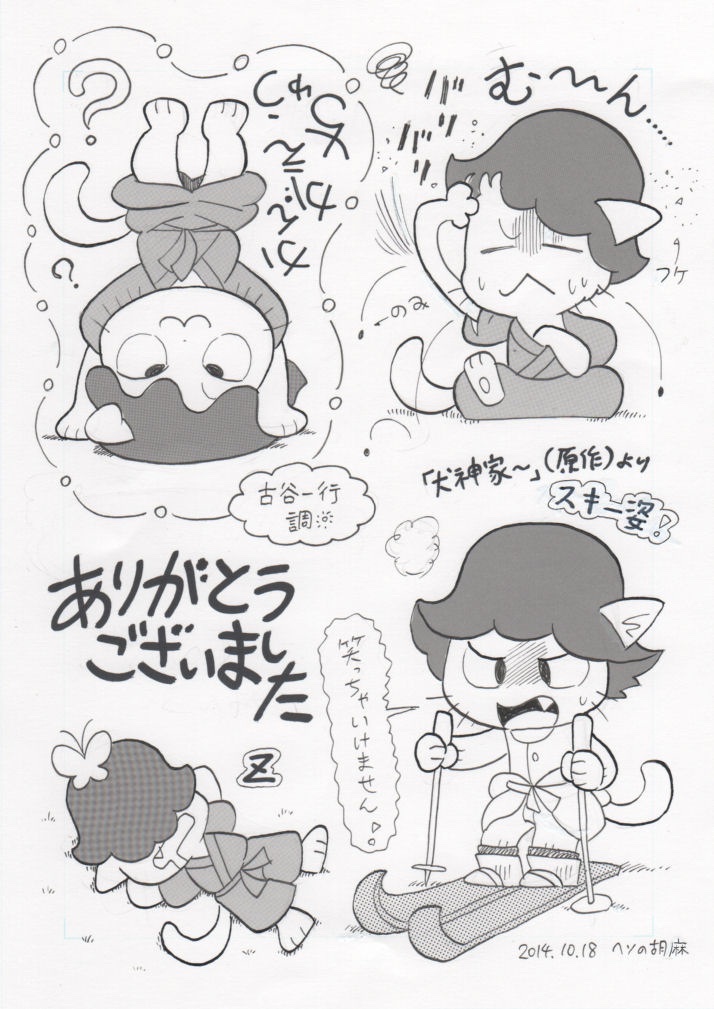 む〜〜ん……
バババッ
フケ
←のみ
?
?
かんがえちゅう
古谷一行
調※
「犬神家〜」(原作)より
スキー姿!
ありがとう
ございました
笑っちゃいけません!
Z
2014.10.18 ヘソの胡麻